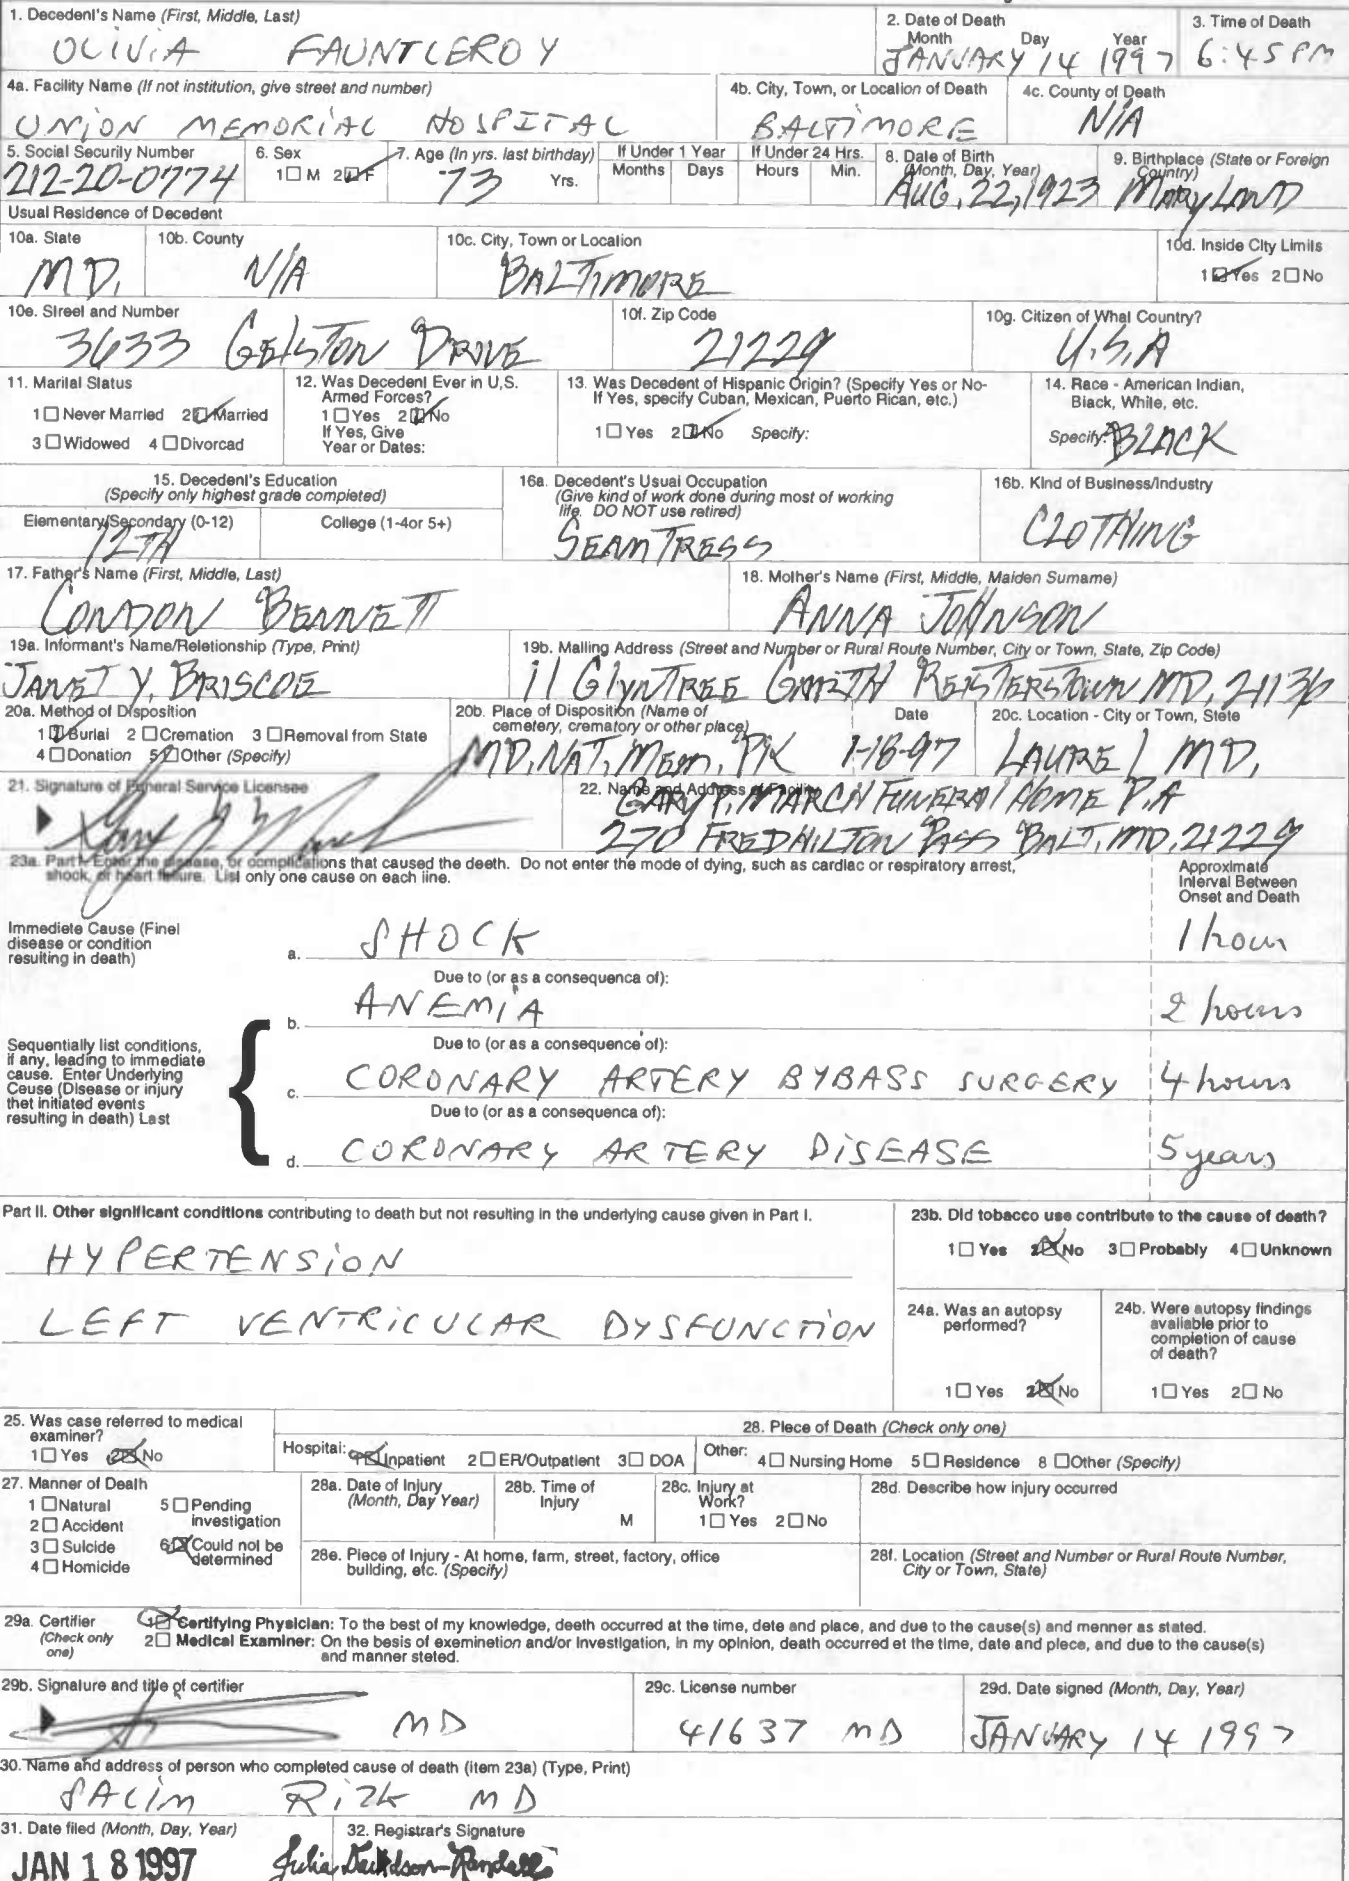 1. Decedent's Name (First, Middle, Last)
OLIVIA FAUNTLEROY
2. Date of Death
Month Day Year
JANUARY 14 1997
3. Time of Death
6:45 PM
4a. Facility Name (If not institution, give street and number)
UNION MEMORIAL HOSPITAL
4b. City, Town, or Location of Death
BALTIMORE
4c. County of Death
N/A
5. Social Security Number
212-20-0774
6. Sex
1 ☐ M 2 ☑ F
7. Age (In yrs. last birthday)
73 Yrs.
If Under 1 Year
Months Days
If Under 24 Hrs.
Hours Min.
8. Date of Birth
(Month, Day, Year)
AUG, 22, 1923
9. Birthplace (State or Foreign
Country)
MARYLAND
Usual Residence of Decedent
10a. State
MD.
10b. County
N/A
10c. City, Town or Location
BALTIMORE
10d. Inside City Limits
1 ☑ Yes 2 ☐ No
10e. Street and Number
3633 GELSTON DRIVE
10f. Zip Code
21229
10g. Citizen of What Country?
U.S.A
11. Marital Status
1 ☐ Never Married 2 ☑ Married
3 ☐ Widowed 4 ☐ Divorcad
12. Was Decedent Ever in U.S.
Armed Forces?
1 ☐ Yes 2 ☑ No
If Yes, Give
Year or Dates:
13. Was Decedent of Hispanic Origin? (Specify Yes or No-
If Yes, specify Cuban, Mexican, Puerto Rican, etc.)
1 ☐ Yes 2 ☑ No Specify:
14. Race - American Indian,
Black, White, etc.
Specify: BLACK
15. Decedent's Education
(Specify only highest grade completed)
Elementary/Secondary (0-12)
12TH
College (1-4or 5+)
16a. Decedent's Usual Occupation
(Give kind of work done during most of working
life. DO NOT use retired)
SEAMTRESS
16b. Kind of Business/Industry
CLOTHING
17. Father's Name (First, Middle, Last)
CONDON BENNETT
18. Mother's Name (First, Middle, Maiden Surname)
ANNA JOHNSON
19a. Informant's Name/Reletionship (Type, Print)
JANET Y. BRISCOE
19b. Mailing Address (Street and Number or Rural Route Number, City or Town, State, Zip Code)
11 GlyNTREE GARTH REISTERSTOWN MD. 21136
20a. Method of Disposition
1 ☑ Burial 2 ☐ Cremation 3 ☐ Removal from State
4 ☐ Donation 5 ☐ Other (Specify)
20b. Place of Disposition (Name of
cemetery, crematory or other place)
MD. NAT. MEM. PK
Date
1-18-97
20c. Location - City or Town, Stete
LAUREL MD.
21. Signature of Funeral Service Licensee
22. Name and Address of Facility
GARY P. MARCH FUNERAL HOME P.A
270 FREDHILTON PASS BALT. MD. 21229
23a. Part I. Enter the disease, or complications that caused the deeth. Do not enter the mode of dying, such as cardiac or respiratory arrest,
shock, or heart feilure. List only one cause on each line.
Approximate
Interval Between
Onset and Death
Immediete Cause (Finel
disease or condition
resulting in death)
a. SHOCK
1 hour
Due to (or as a consequence of):
b. ANEMIA
2 hours
Sequentially list conditions,
if any, leading to immediate
cause. Enter Underlying
Ceuse (Disease or injury
thet initiated events
resulting in death) Last
Due to (or as a consequence of):
c. CORONARY ARTERY BYBASS SURGERY
4 hours
Due to (or as a consequence of):
d. CORONARY ARTERY DISEASE
5 years
Part II. Other significant conditions contributing to death but not resulting in the underlying cause given in Part I.
HYPERTENSION
LEFT VENTRICULAR DYSFUNCTION
23b. Did tobacco use contribute to the cause of death?
1 ☐ Yes 2 ☒ No 3 ☐ Probably 4 ☐ Unknown
24a. Was an autopsy
performed?
1 ☐ Yes 2 ☒ No
24b. Were autopsy findings
available prior to
completion of cause
of death?
1 ☐ Yes 2 ☐ No
25. Was case referred to medical
examiner?
1 ☐ Yes 2 ☒ No
28. Plece of Death (Check only one)
Hospital: 1 ☒ Inpatient 2 ☐ ER/Outpatient 3 ☐ DOA
Other: 4 ☐ Nursing Home 5 ☐ Residence 8 ☐ Other (Specify)
27. Manner of Death
1 ☐ Natural 5 ☐ Pending
investigation
2 ☐ Accident
3 ☐ Suicide 6 ☒ Could not be
determined
4 ☐ Homicide
28a. Date of Injury
(Month, Day Year)
28b. Time of
Injury
M
28c. Injury at
Work?
1 ☐ Yes 2 ☐ No
28d. Describe how injury occurred
28e. Plece of Injury - At home, farm, street, factory, office
building, etc. (Specify)
28f. Location (Street and Number or Rural Route Number,
City or Town, State)
29a. Certifier
(Check only
one)
1 ☒ Certifying Physician: To the best of my knowledge, deeth occurred at the time, dete and place, and due to the cause(s) and menner as stated.
2 ☐ Medical Examiner: On the besis of exeminetion and/or investigation, in my opinion, death occurred et the time, date and plece, and due to the cause(s)
and manner steted.
29b. Signature and title of certifier
MD
29c. License number
41637 MD
29d. Date signed (Month, Day, Year)
JANUARY 14 1997
30. Name and address of person who completed cause of death (item 23a) (Type, Print)
SALIM RIZK MD
31. Date filed (Month, Day, Year)
JAN 18 1997
32. Registrar's Signature
Julia Davidson-Randall